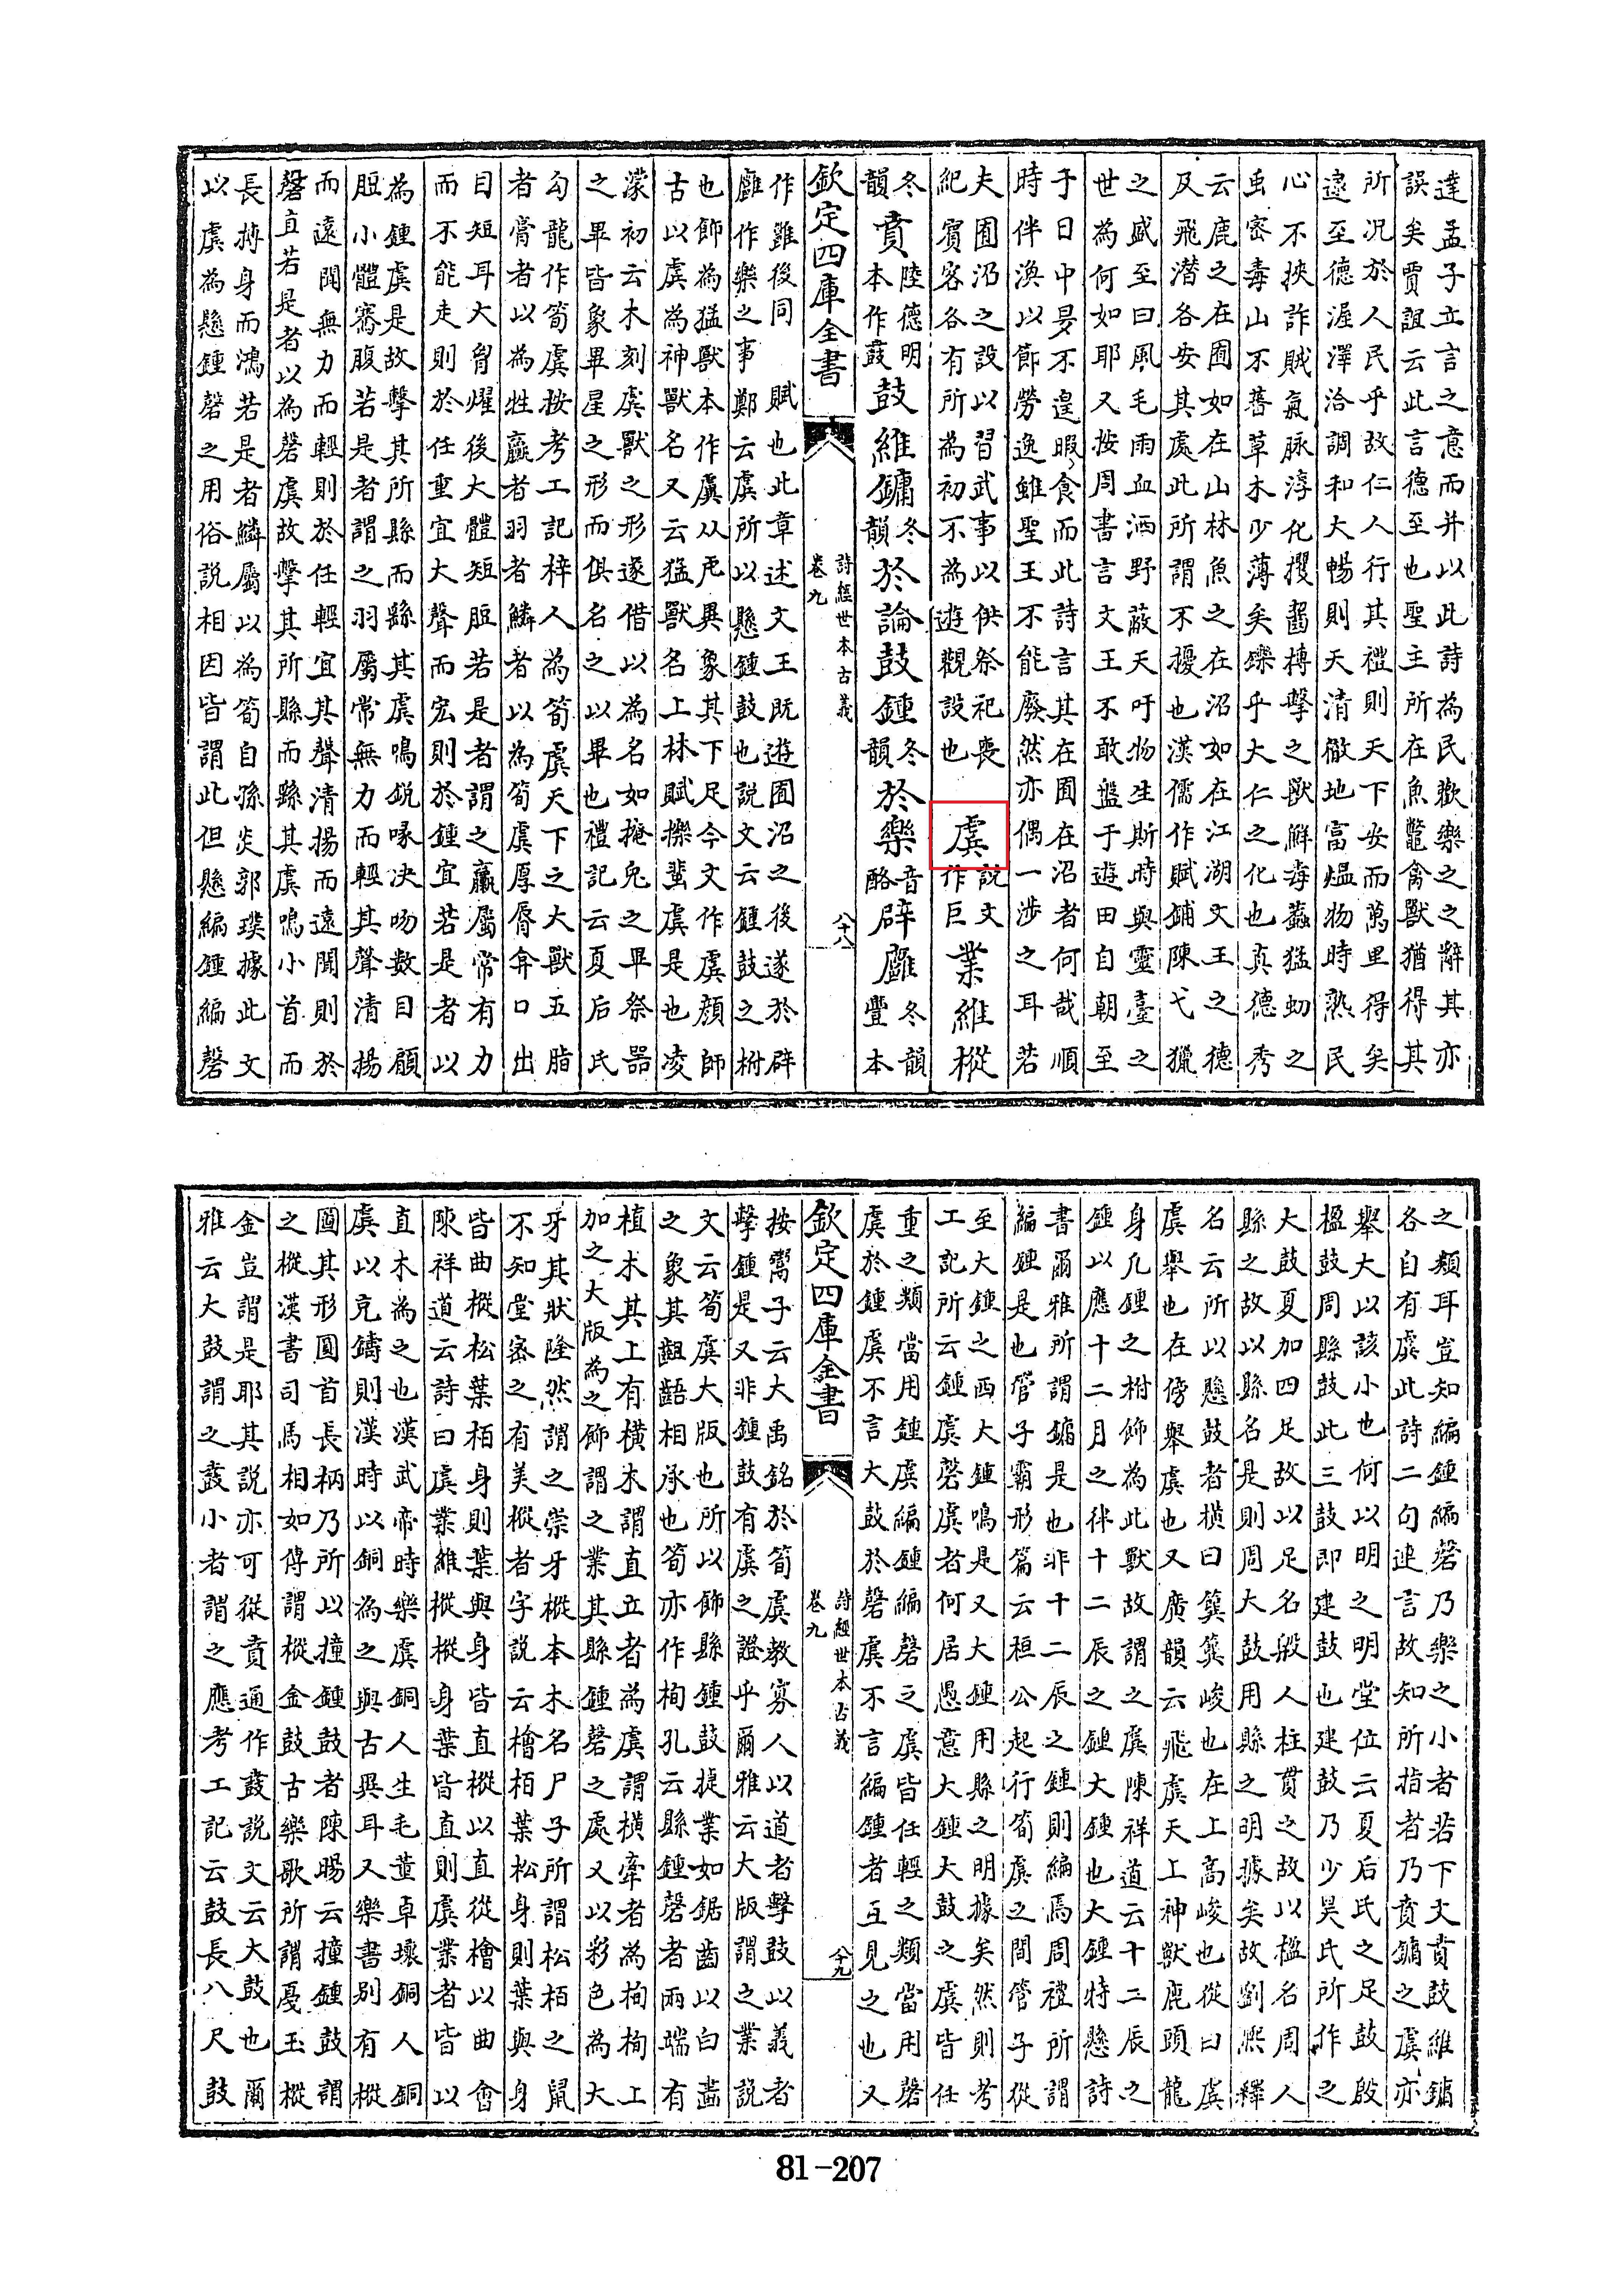 達孟子立言之意而并以此詩為民歡樂之之辭其亦
誤矣賈誼云此言德至也聖主所在魚鼈禽獸猶得其
所況於人民乎故仁人行其禮則天下安而萬里得矣
逮至德渥澤洽調和大暢則天清徹地富熅物時熟民
心不挾詐賊氣脉淳化攫齧搏擊之獸鮮毒蠚猛蚴之
䖝密毒山不蕃草木少薄矣鑠乎大仁之化也真德秀
云鹿之在囿如在山林魚之在沼如在江湖文王之德
及飛潛各安其處此所謂不擾也漢儒作賦鋪陳弋獵
之盛至曰風毛雨血洒野蔽天吁物生斯時與靈臺之
世為何如耶又按周書言文王不敢盤于遊田自朝至
于日中昃不遑暇食而此詩言其在囿在沼者何哉順
時伴渙以節勞逸雖聖王不能廢然亦偶一涉之耳若
夫囿沼之設以習武事以供祭祀喪
紀賓客各有所為初不為遊觀設也
虡說文作巨業維樅
冬韻賁陸德明本作鼖鼓維鏞冬韻於論鼓鍾冬韻於樂音酪辟廱冬韻豐本
欽定四庫全書
詩經世本古義
卷九
八十八
作雖後同 賦也此章述文王既遊囿沼之後遂於辟
廱作樂之事鄭云虡所以懸鍾鼓也說文云鍾鼓之柎
也飾為猛獸本作虡从虍異象其下足今文作虡顔師
古以虡為神獸名又云猛獸名上林賦擽蜚虡是也凌
濛初云木刻虡獸之形遂借以為名如掩兔之畢祭器
之畢皆象畢星之形而俱名之以畢也禮記云夏后氏
勾龍作筍虡按考工記梓人為筍虡天下之大獸五脂
者膏者以為牲臝者羽者鱗者以為筍虡厚脣弇口出
目短耳大胷燿後大體短脰若是者謂之臝屬常有力
而不能走則於任重宜大聲而宏則於鍾宜若是者以
為鍾虡是故擊其所縣而繇其虡鳴鋭喙决吻數目顅
脰小體騫腹若是者謂之羽屬常無力而輕其聲清揚
而遠聞無力而輕則於任輕宜其聲清揚而遠聞則於
磬宜若是者以為磬虡故擊其所縣而繇其虡鳴小首而
長摶身而鴻若是者鱗屬以為筍自孫炎郭璞據此文
以虡為懸鍾磬之用俗說相因皆謂此但懸編鍾編磬
之類耳豈知編鍾編磬乃樂之小者若下文賁鼓維鏞
各自有虡此詩二句連言故知所指者乃賁鏞之虡亦
舉大以該小也何以明之明堂位云夏后氏之足鼓殷
楹鼓周縣鼓此三鼓即建鼓也建鼓乃少昊氏所作之
大鼓夏加四足故以足名殷人柱貫之故以楹名周人
縣之故以縣名是則周大鼓用縣之明據矣故劉熙釋
名云所以懸鼓者橫曰簨簨峻也在上高峻也從曰虡
虡舉也在傍舉虡也又廣韻云飛虡天上神獸鹿頭龍
身凡鍾之柎飾為此獸故謂之虡陳祥道云十二辰之
鍾以應十二月之律十二辰之鍾大鍾也大鍾特懸詩
書爾雅所謂鏞是也非十二辰之鍾則編焉周禮所謂
編鍾是也管子霸形篇云桓公起行筍虡之間管子從
至大鍾之西大鍾鳴是又大鍾用縣之明據矣然則考
工記所云鍾虡磬虡者何居愚意大鍾大鼓之虡皆任
重之類當用鍾虡編鍾編磬之虡皆任輕之類當用磬
虡於鍾虡不言大鼓於磬虡不言編鍾者互見之也又
欽定四庫全書
詩經世本古義
卷九
八十九
按鬻子云大禹銘於筍虡教寡人以道者擊鼓以義者
擊鍾是又非鍾鼓有虡之證乎爾雅云大版謂之業說
文云筍虡大版也所以飾縣鍾鼓捷業如鋸齒以白畫
之象其鉏鋙相承也筍亦作栒孔云縣鍾磬者兩端有
植木其上有橫木謂直立者為虡謂橫牽者為栒栒上
加之大版為之飾謂之業其縣鍾磬之處又以彩色為大
牙其狀隆然謂之崇牙樅本木名尸子所謂松栢之鼠
不知堂密之有美樅者字說云檜栢葉松身則葉與身
皆曲樅松葉栢身則葉與身皆直樅以直從檜以曲會
陳祥道云詩曰虡業維樅樅身葉皆直則虡業者皆以
直木為之也漢武帝時樂虡銅人生毛董卓壞銅人銅
虡以充鑄則漢時以銅為之與古異耳又樂書别有樅
圓其形圓首長柄乃所以撞鍾鼓者陳暘云撞鍾鼓謂
之樅漢書司馬相如傳謂樅金鼓古樂歌所謂戞玉樅
金豈謂是耶其說亦可從賁通作鼖說文云大鼓也爾
雅云大鼓謂之鼖小者謂之應考工記云鼓長八尺鼓
81-207